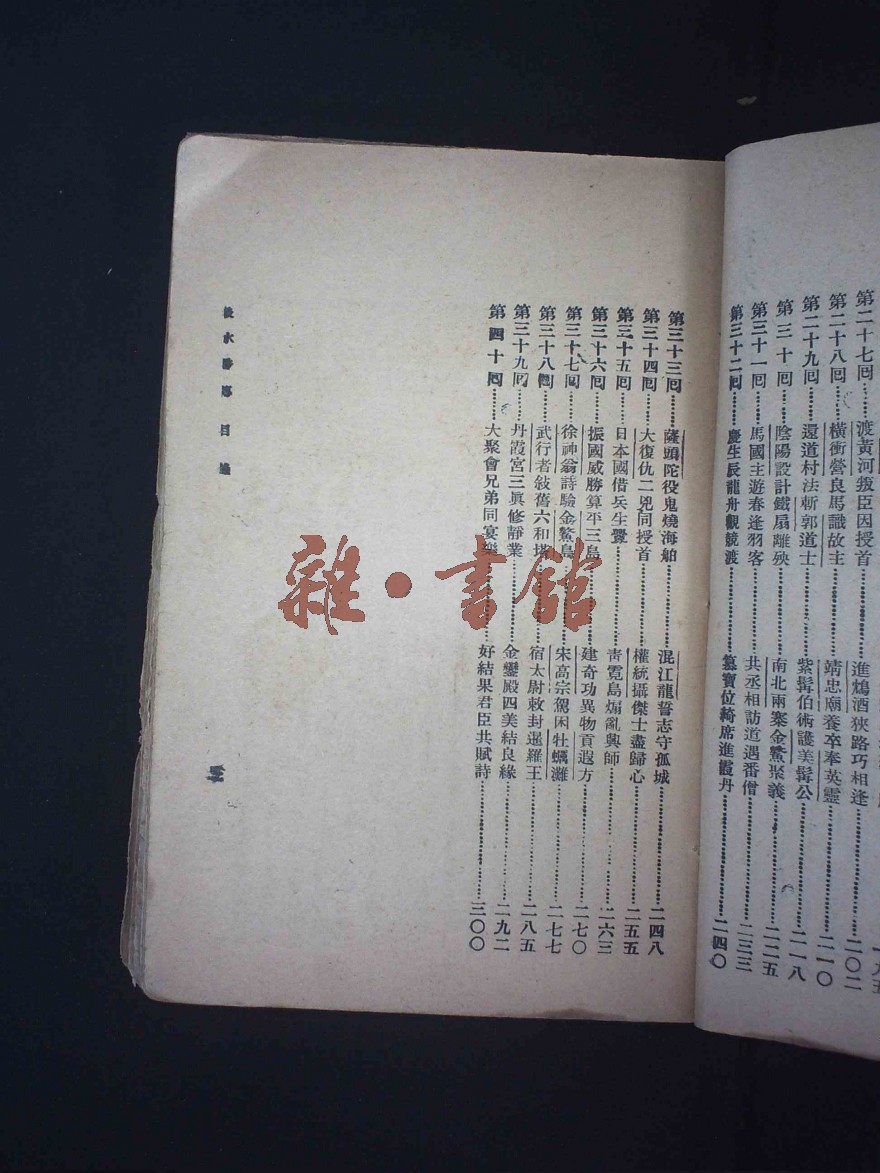 第二十七回……渡黃河叛臣因授首 進鴆酒狹路巧相逢……二〇二
第二十八回……橫衝營良馬識故主 靖忠廟養卒奉英靈……二一〇
第二十九回……還道村法斬郭道士 紫髯伯術護美髯公……二一八
第三十回……陰陽設計鐵扇離殃 南北兩寨金鰲聚義……二二五
第三十一回……馬國主遊春逢羽客 共丞相訪道遇番僧……二三三
第三十二回……慶生辰龍舟觀競渡……篡寶位綺席進霞丹……二四〇
第三十三回……薩頭陀役鬼燒海舶 混江龍誓志守孤城……二四八
第三十四回……大復仇二兇同授首……權統攝傑士盡歸心……二五五
第三十五回……日本國借兵生釁……青霓島煽亂興師……二六三
第三十六回……振國威勝算平三島……建奇功異物貢遐方……二七〇
第三十七回……徐神翁詩驗金鰲島……宋高宗駕困牡蠣灘……二七七
第三十八回……武行者敍舊六和塔……宿太尉敕封暹羅王……二八五
第三十九回……丹霞宮三眞修靜業……金鑾殿四美結良緣……二九二
第四十回……大聚會兄弟同宴樂……好結果君臣共賦詩……三〇〇
後水滸傳 目錄
三
雜·書館